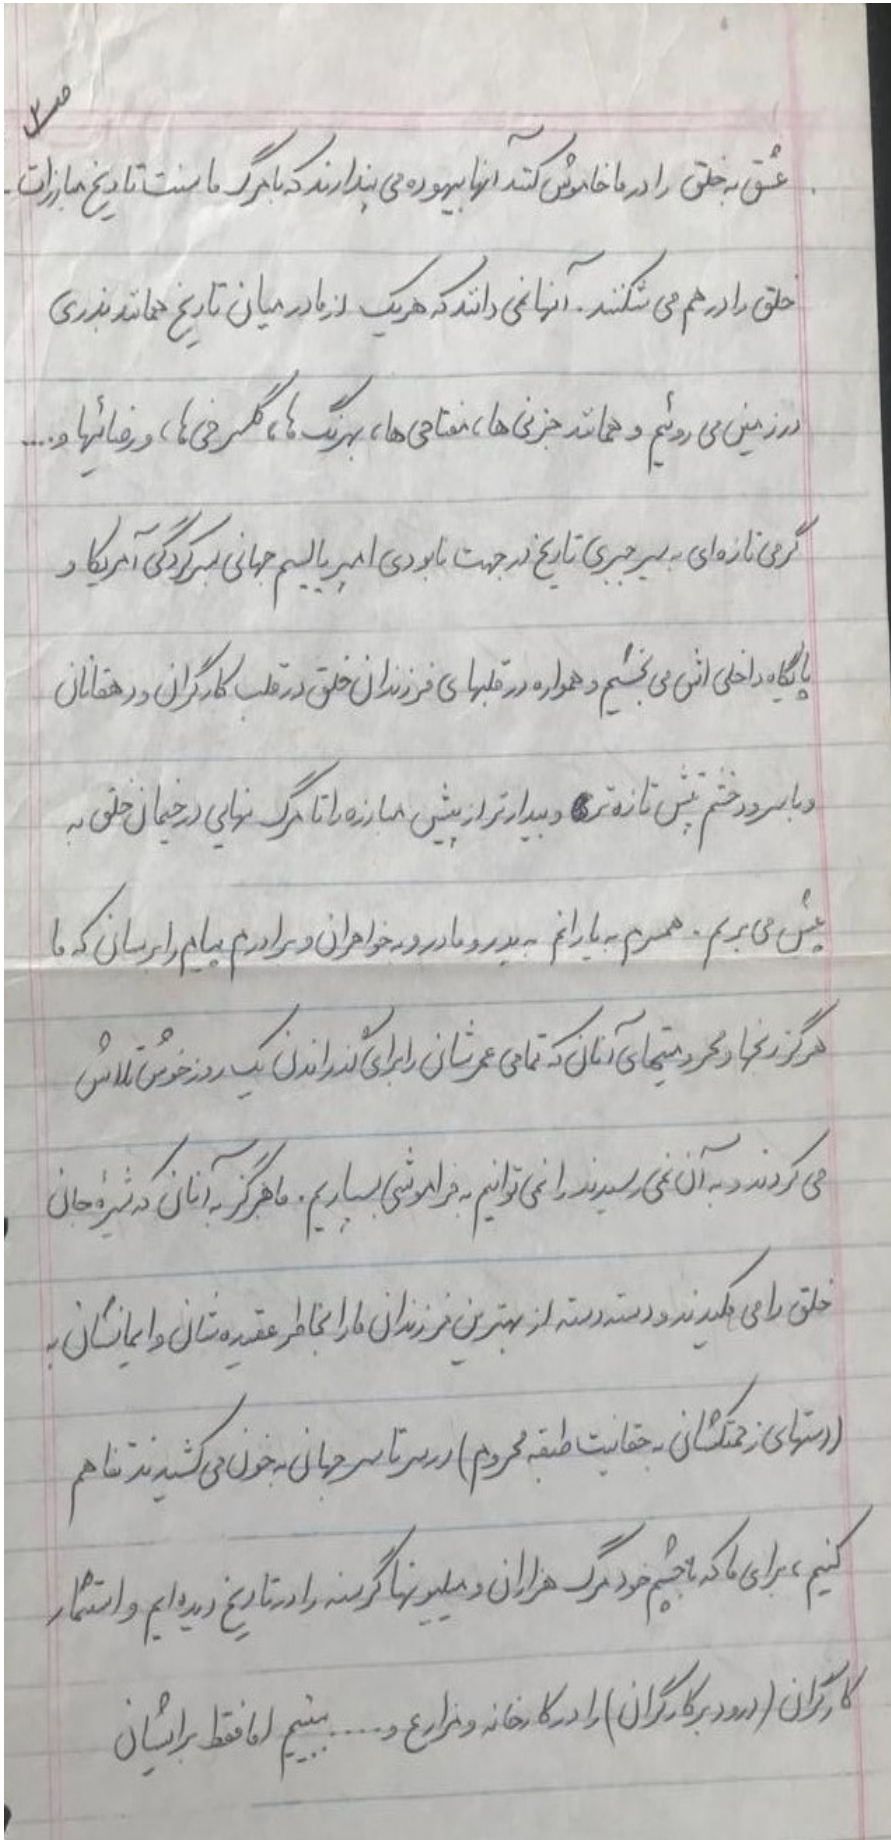 ص ۲
عشق به خلق را در ما خاموش کنند آنها بیهوده می پندارند که با مرگ ما سنت تاریخ مبارزات
خلق را در هم می شکنند. آنها نمی دانند که هر یک از ما در میان تاریخ همانند بذری
در زمین می روئیم و همانند جزنی ها، مفتاحی ها، بهرنگ ها، گلسرخی ها، و رضائیها و....
گرمی تازه ای به سیر جبری تاریخ در جهت نابودی امپریالیسم جهانی بسرکردگی آمریکا و
پایگاه داخلی اش می بخشیم و همواره در قلبهای فرزندان خلق در قلب کارگران و دهقانان
و با سرود خشم تپش تازه تر و بیدارتر از پیش مبارزه را تا مرگ نهایی دژخیمان خلق به
پیش می بریم. همسرم به یارانم به پدر و مادر و به خواهران و برادرم پیامم را برسان که ما
هرگز رنجها و محرومیتهای آنان که تمامی عمرشان را برای گذراندن یک روز خوش تلاش
می کردند و به آن نمی رسیدند را نمی توانیم به فراموشی بسپاریم. ما هرگز به آنان که شیرهٔ جان
خلق را می مکیدند و دسته دسته از بهترین فرزندان ما را بخاطر عقیده شان و ایمانشان به
(دستهای زحمتکشانی به حقانیت طبقه محروم) در سرتاسر جهانی به خون می کشیدند تفاهم
کنیم، برای ما که با چشم خود مرگ هزاران و میلیونها گرسنه را در تاریخ دیده ایم و استثمار
کارگران (درود بر کارگران) را در کارخانه و مزارع و.... ببینیم اما فقط برایشان